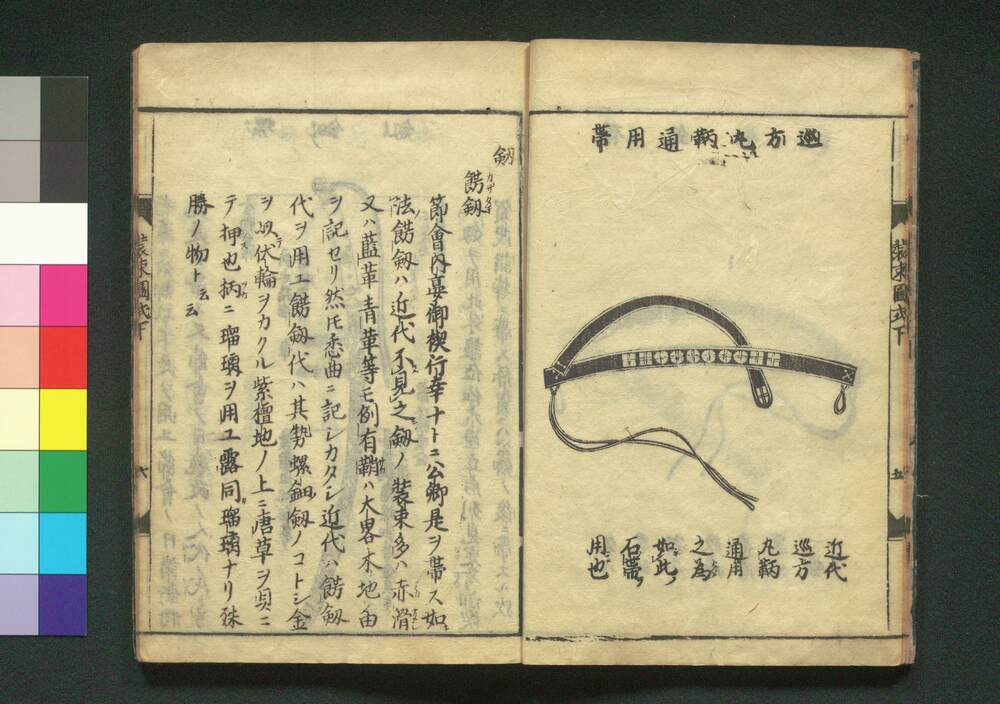 巡方丸鞆通用帯
近代
巡方
丸鞆
通用
之為
如此
石帯
用也
五
装束圖式下
剱
餝剱
節會内宴御禊行幸ナトニ公卿是ヲ帯ス如
法餝剱ハ近代不見之剱ノ装束多ハ赤滑
又ハ藍革青革等モ例有鞘ハ大畧木地ノ由
ヲ記セリ然トモ悉曲ニ記シカタシ近代ハ餝剱
代ヲ用エ餝剱代ハ其勢螺鈿剱ノコトシ金
ヲ以伏輪ヲカクル紫檀地ノ上ニ唐草ヲ貝ニ
テ押也柄ニ瑠璃ヲ用エ露同瑠璃ナリ殊
勝ノ物ト云云
装束圖式下
六